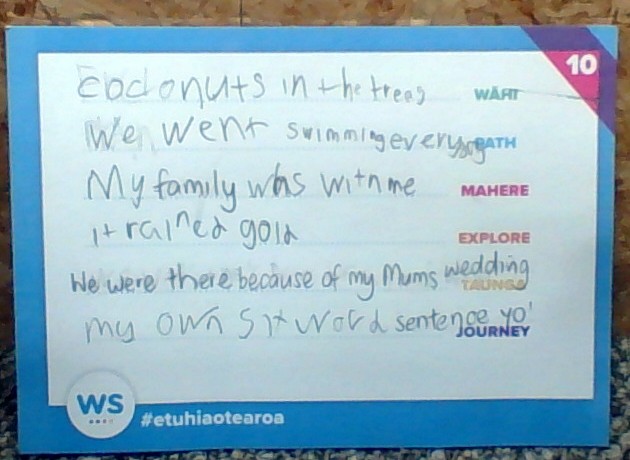 10
Cocdonuts in the trees WĀHI
We went swimming every day PATH
My family whs witn me MAHERE
it rained gold EXPLORE
We were there because of my Mums wedding TAUNGA
my own six word sentence yo' JOURNEY
WS #etuhiaotearoa